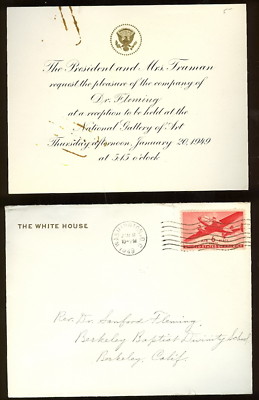 The President and Mrs. Truman
request the pleasure of the company of
Dr. Fleming
at a reception to be held at the
National Gallery of Art
Thursday afternoon, January 20, 1949
at 5:15 o'clock
THE WHITE HOUSE
Rev. Dr. Sanford Fleming,
Berkeley Baptist Divinity School
Berkeley, Calif.